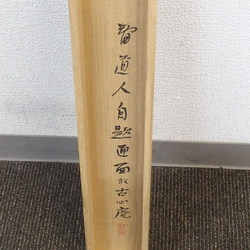 道人自題匣面於古心庵